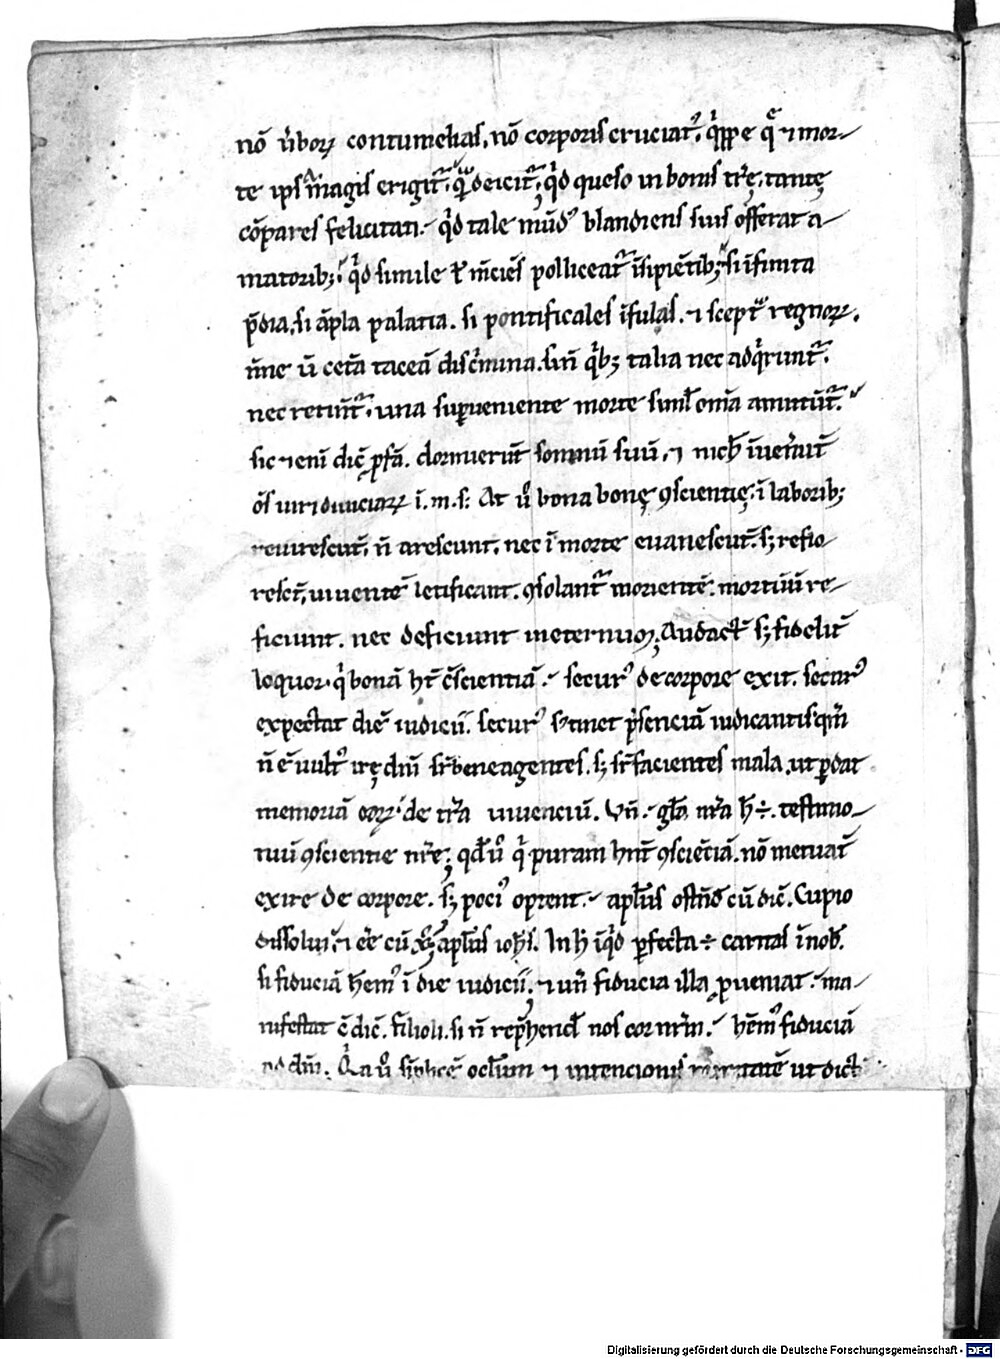 nō ūboꝝ contumelias, nō corporis cruciatꝰ. q̇ppe q̄ ⁊ mor-
te ipsā magis erigit᷑, q̄ deicit᷑; qͥd queso in bonis tr̄ę, tantę
cōpares felicitati. qͥd tale mūdꝰ blandiens suis offerat a-
matorib; qͥd simile ł m̄cięs polliceat᷑ īsipiētib; si īfinita
p̄dia, si āpla palatia. si pontificales īfulas. ⁊ sceptͣ regnoꝝ.
n̄ne ū cetā taceā discͥmina. sūt qͥb; talia nec adqͥrunt᷑.
nec retinēt᷑, una suꝑueniente morte siml̄ om̄ia amittūt᷑.
sic ⁊ eni dic̄ ꝓfā. dormierūt somnū suū, ⁊ nich̄ īuen̄it
ōs uiri diuiciaꝝ ī. m. s: At ū bona bonę ꝯscientię, ī laborib;
reuirescūt, n̄ arescunt, nec ī morte euanescūt. s; reflo-
resc̄t, uiuentē letificant. ꝯsolant᷑ morientē: mortuū re-
ficiunt. nec deficiunt ineternuꝫ. Audact̄ s; fidelit̄
loquor. qͥ bonā ht̄ ꝯscientiā. securꝰ de corpore exit. securꝰ
expectat diē iudicii. securꝰ sꝰtinet p̄senciā iudicantis. qm̄
n̄ ē uultꝰ irę dn̄i sr̄ bene agentes. s; sr̄ facientes mala, ut ꝑdat
memoriā eoꝝ de tr̄ra uiuenciū. Vn̄. gła nr̄a h̄ ÷. testimo-
niū ꝯscientie nr̄e; qd̄ ū qͥ puram hn̄t ꝯsciēciā. nō metuāt
exire de corpore. s; pociꝰ optent. apłus ostn̄d cū dic̄. Cupio
dissolui, ⁊ eē cū xp̄o; apłus ioh̄s. In h̄ īqͥd ꝑfecta ÷ caritas īnob̄.
si fiduciā hem̄ꝰ ī die iudicii; ⁊ un̄ fiducia illa ꝓueniat. ma-
nifestat c̄ dic̄. filioli. si n̄ rep̄henđ nos cor nr̄m. hēmꝰ fiduciā
ad dm̄. Qͥa ū sīplicē oclm̄ ⁊ intencionis ut dict̄